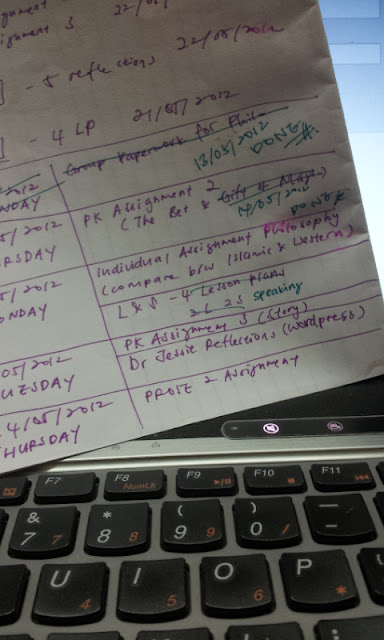 ignment 3
22/05/2012
] - 5 reflections
] - 4 LP 21/05/2012
2012
NDAY
Group Paperwork for Phil
13/05/2012
DONE
5/2012
RSDAY
PK Assignment 2
(The Bet & Gift of Magi)
14/05/2012
DONE
5/2012
ONDAY
Individual Assignment Philosophy
(compare b/w Islamic & Western)
L&S - 4 Lesson Plans
2L 2S speaking
05/2012
UESDAY
PK Assignment 3 (Story)
Dr Jessie Reflections (Wordpress)
4/05/2012
HURSDAY
PROSE 2 Assignment
F7 F8 F9 F10 F11
NumLk
& * ( )
7 7 8 8 9 9 0 /
U I O P
4 5 6 *